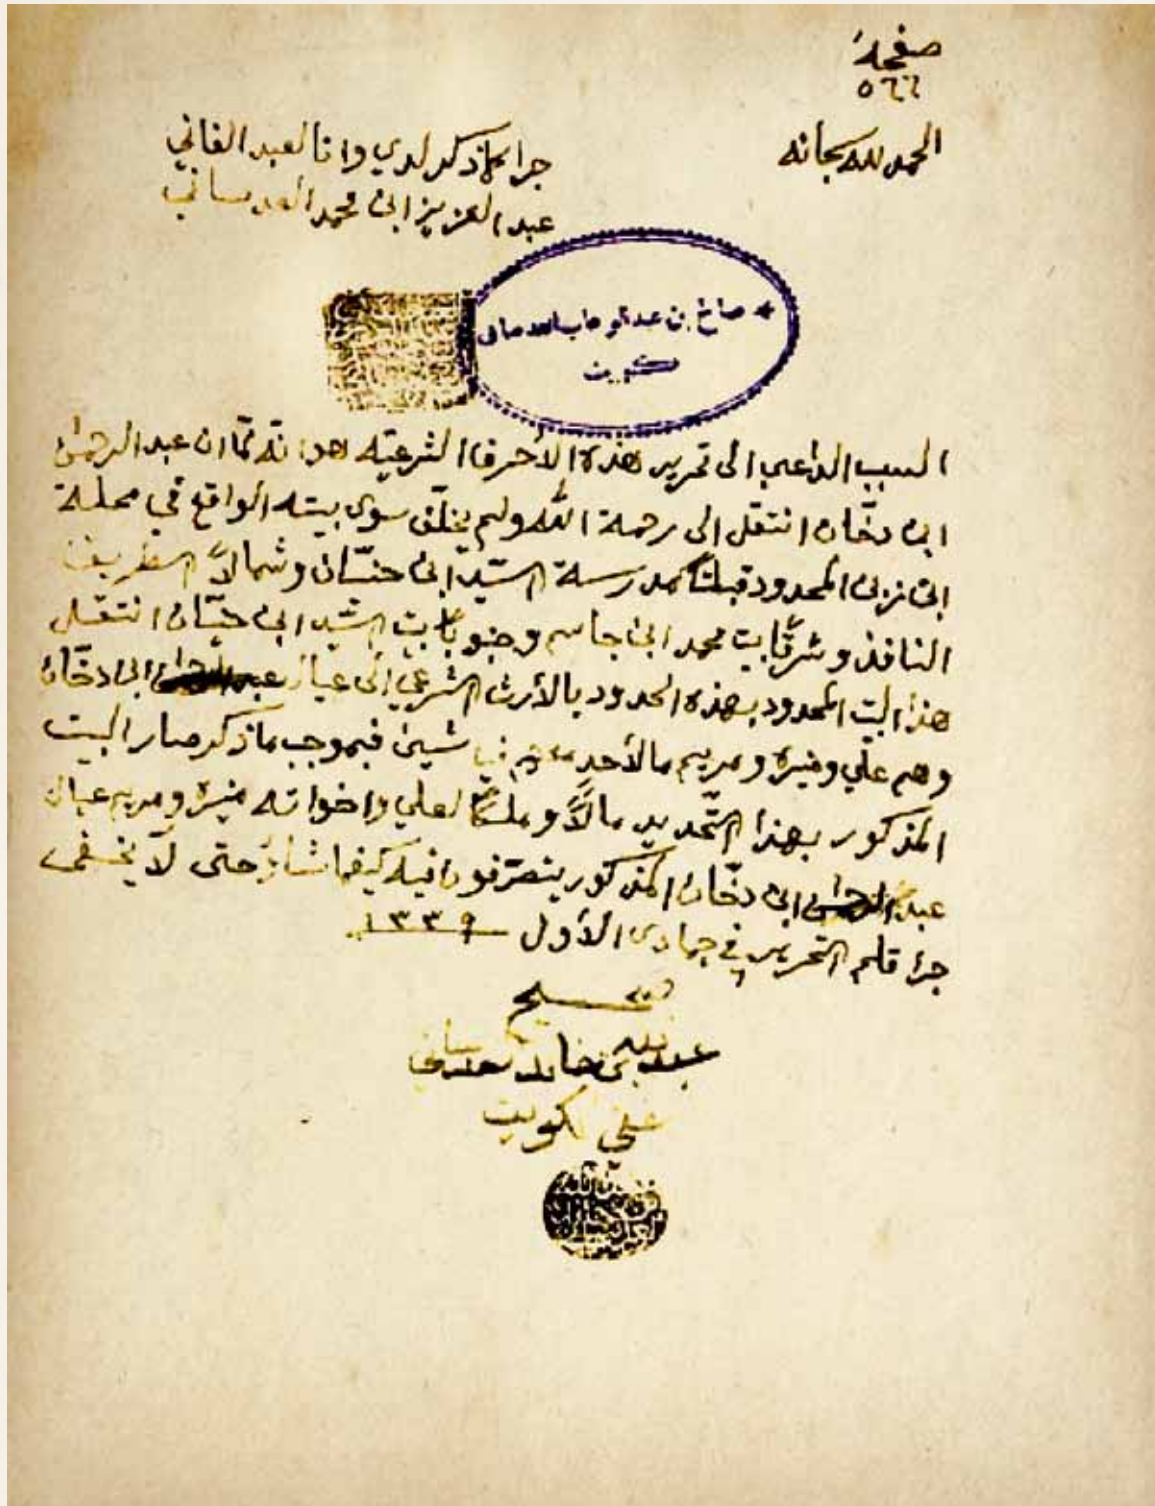 صفحة
٥٦٦
الحمد لله سبحانه
جرا كما ذكر لدي وانا العبد الفاني
عبد العزيز ابن محمد العدساني
صالح بن عبد الوهاب العدساني
كويت
السبب الداعي الى تحرير هذه الأحرف الشرعيّه هو انّه لمّا ان عبد الرحمن
ابن دخّان انتقل الى رحمة الله ولم يخلّف سوى بيته الواقع في محلة
ابن المحدود قبلتًا مدرسة السّيد ابن وشمالاً الطريق
النافذ وشرقًا بيت محمد ابن جاسم وجنوبًا بيت السّيد ابن انتقل
هذا البيت المحدود بهذه الحدود بالأرث الشرعي إلى عيال ابن دخّان
وهم علي ومنيره ومريم مالأحد فيه شيئ فبموجب ما ذكر صار البيت
المذكور بهذا التّحديد مالاً وملكًا لعلي واخواته منيره ومريم عيال
عبد الرحمن ابن دخّان المذكور يتصرّفون فيه كيفما شاؤ حتى لا يخفى
جرا قلم التحرير في جمادى الأول ١٣٣٩
صحيح
عبد الله بن خالد العدساني
الكويت